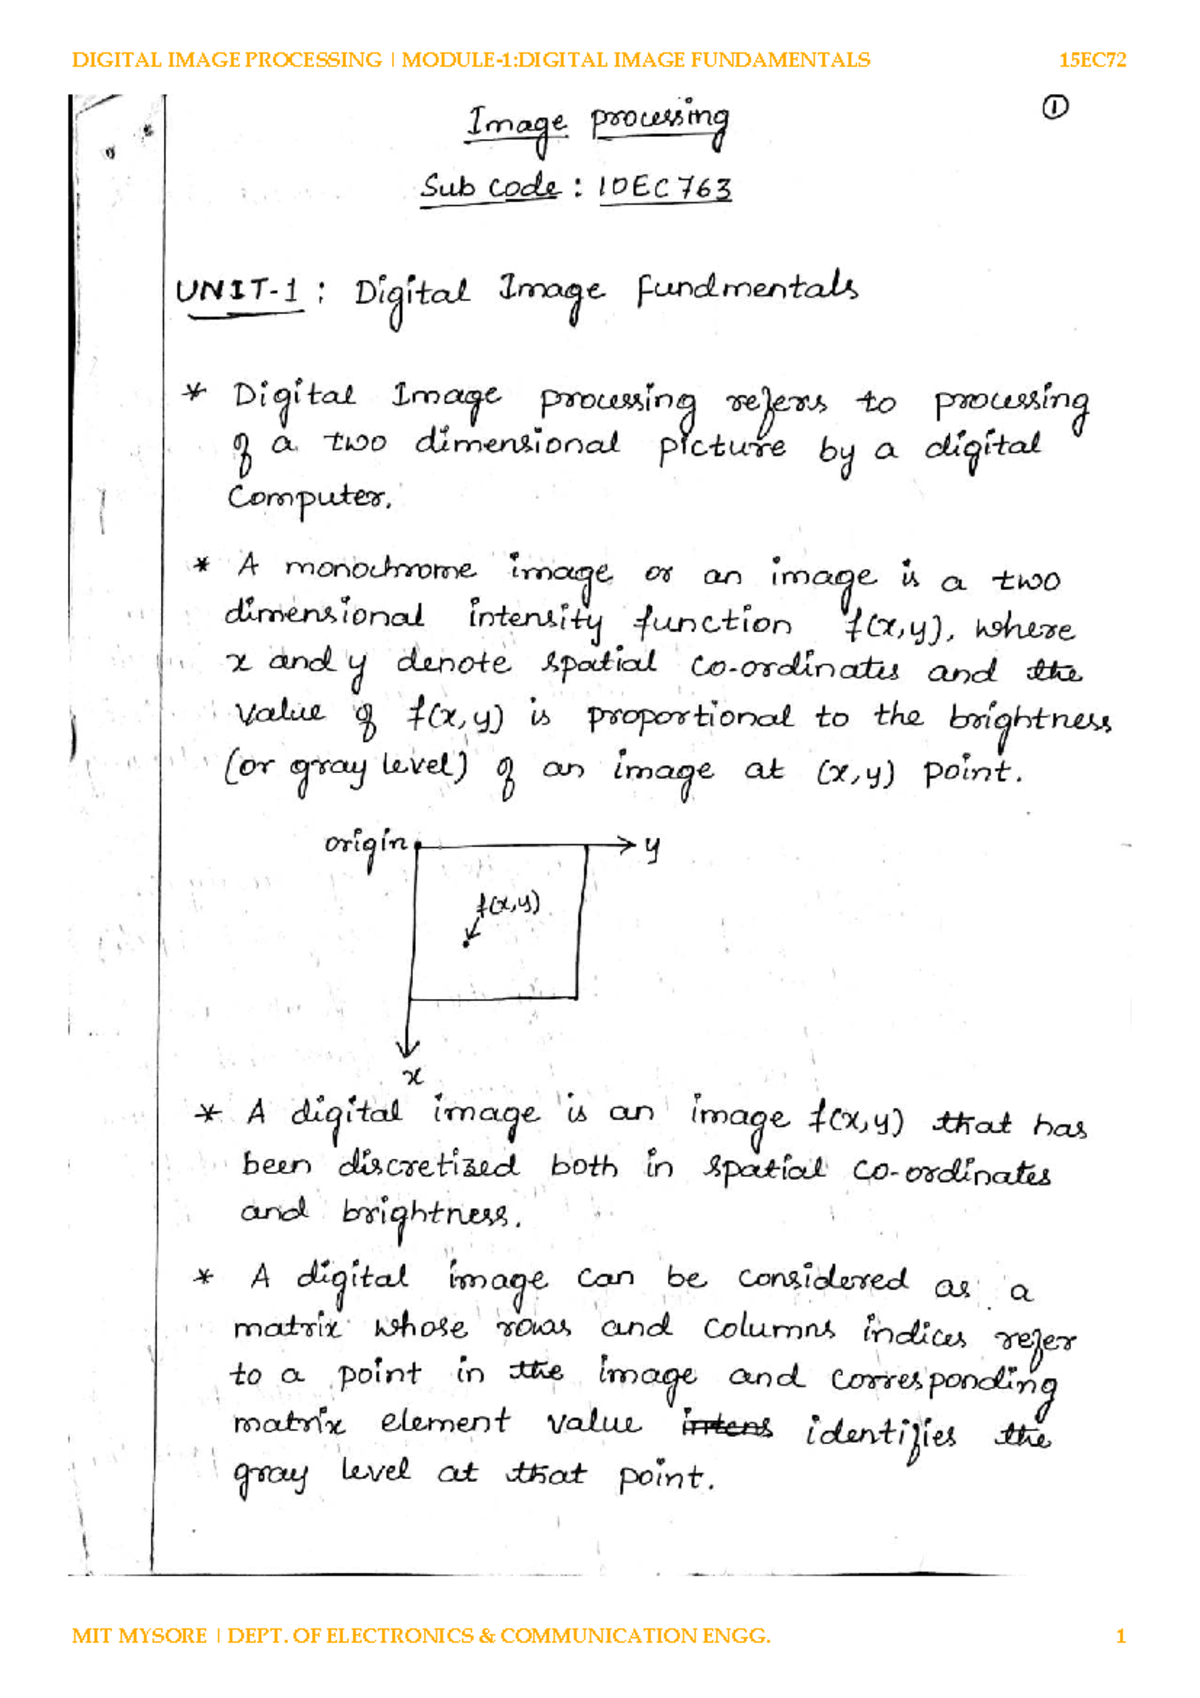 DIGITAL IMAGE PROCESSING | MODULE-1:DIGITAL IMAGE FUNDAMENTALS 15EC72
Image processing ①
Sub code : 10EC763
UNIT-1 : Digital Image Fundmentals
* Digital Image processing refers to processing
of a two dimensional picture by a digital
Computer.
* A monochrome image or an image is a two
dimensional intensity function f(x,y), where
x and y denote spatial co-ordinates and the
value of f(x,y) is proportional to the brightness
(or gray level) of an image at (x,y) point.
origin y
f(x,y)
x
* A digital image is an image f(x,y) that has
been discretized both in spatial co-ordinates
and brightness.
* A digital image can be considered as a
matrix whose rows and columns indices refer
to a point in the image and corresponding
matrix element value intens identifies the
gray level at that point.
MIT MYSORE | DEPT. OF ELECTRONICS & COMMUNICATION ENGG. 1